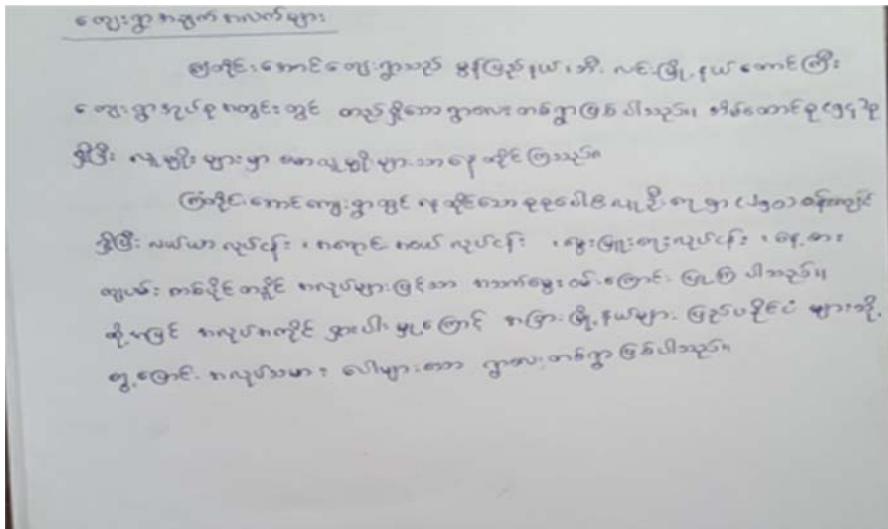 ကျေးရွာအချက်အလက်များ
ကြံတိုင်းအောင်ကျေးရွာသည် မွန်ပြည်နယ်၊ ဘီးလင်းမြို့နယ် တောင်ကြီး
ကျေးရွာအုပ်စုအတွင်းတွင် တည်ရှိသော ရွာလေးတစ်ရွာဖြစ်ပါသည်။ အိမ်ထောင်စု
ရှိပြီး လူမျိုးများမှာ လူမျိုးများသာ နေထိုင်ကြသည်။
ကြံတိုင်းအောင်ကျေးရွာတွင် နေထိုင်သော စုစုပေါင်းလူဦးရေမှာ ဝန်းကျင်
ရှိပြီး လယ်ယာလုပ်ငန်း ၊ လုပ်ငန်း ၊ မွေးမြူရေးလုပ်ငန်း ၊ နေ့စား
ကျပန်း တစ်ပိုင်တစ်နိုင် အလုပ်များဖြင့်သာ အသက်မွေးဝမ်းကြောင်း ပြုကြပါသည်။
ထို့အပြင် အလုပ်အကိုင် ရှားပါးမှုကြောင့် အခြားမြို့နယ်များ၊ ပြည်ပနိုင်ငံ များသို့
အလုပ်သမား ပေါများသော ရွာလေးတစ်ရွာ ဖြစ်ပါသည်။